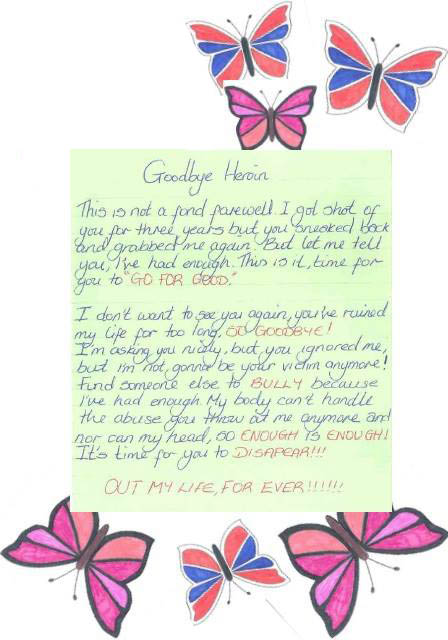 Goodbye Heroin
This is not a fond farewell. I got shot of
you for three years but you sneaked back
and grabbed me again. But let me tell
you, I've had enough. This is it, time for
you to "GO FOR GOOD."
I don't want to see you again, you've ruined
my life for too long, SO GOODBYE!
I'm asking you nicely, but you ignored me,
but i'm not gonna be your victim anymore!
Find someone else to BULLY because
I've had enough. My body can't handle
the abuse you throw at me anymore and
nor can my head, so ENOUGH is ENOUGH!
It's time for you to DISAPEAR!!!
OUT MY LIFE, FOR EVER!!!!!!